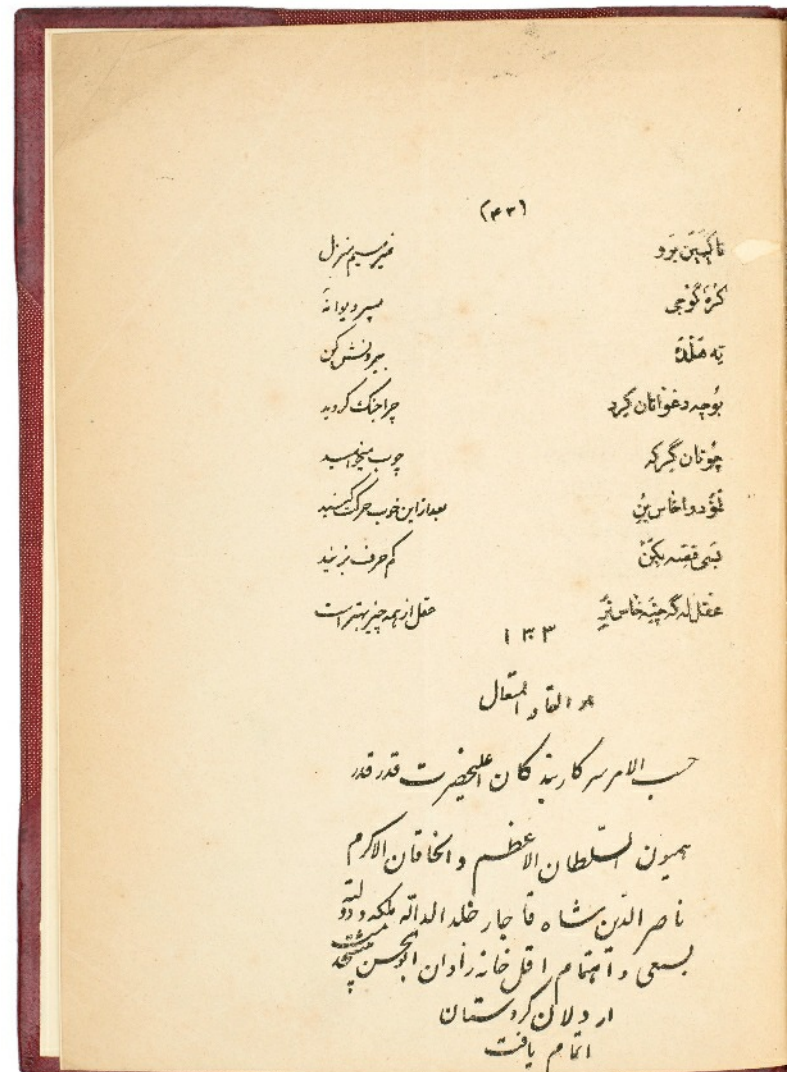 (۴۳)
تاکیین برو نمیرسیم منزل
کره گوجی پسر دیوانه
چرا جنگ کردید
چوتان گرکه چوب میخواهید
بعد از این خوب حرکت کنید
قصه بکن کم حرف بزنید
عقل له گه چیه خاس تر عقل از همه چیز بهتر است
۱۳۳
هو القادر المتعال
حسب الامر سرکار بندگان اعلیحضرت قدر قدر
همیون السلطان الاعظم و الخاقان الاکرم
ناصر الدین شاه قاجار خلد الله ملکه و دولته
بسعی و اهتمام اقل خانه زادان ابوالحسن
اردلان کردستان
اتمام یافت